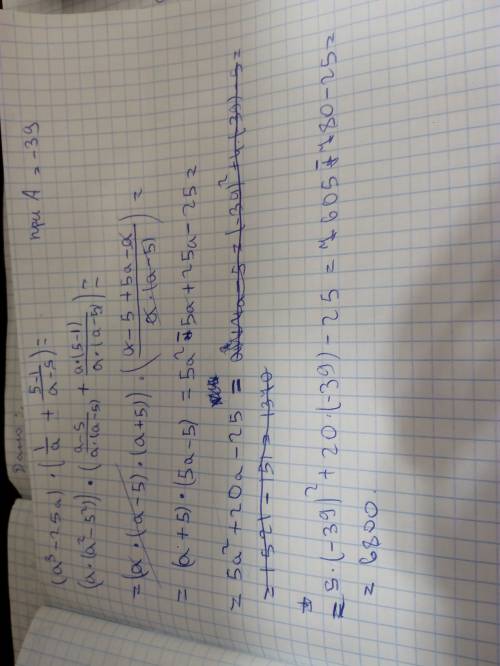 Дано:
(a³-25a)·(1/a + 5-1/a-5)= при A = -39
(a·(a²-5²))·(a-5/a·(a-5) + a·(5-1)/a·(a-5))=
=(a·(a-5)·(a+5))·(a-5+5a-a/a·(a-5))=
= (a+5)·(5a-5) = 5a²-5a+25a-25=
= 5a²+20a-25 =
= 5·(-39)²+20·(-39)-25 = 7605-780-25=
= 6800.